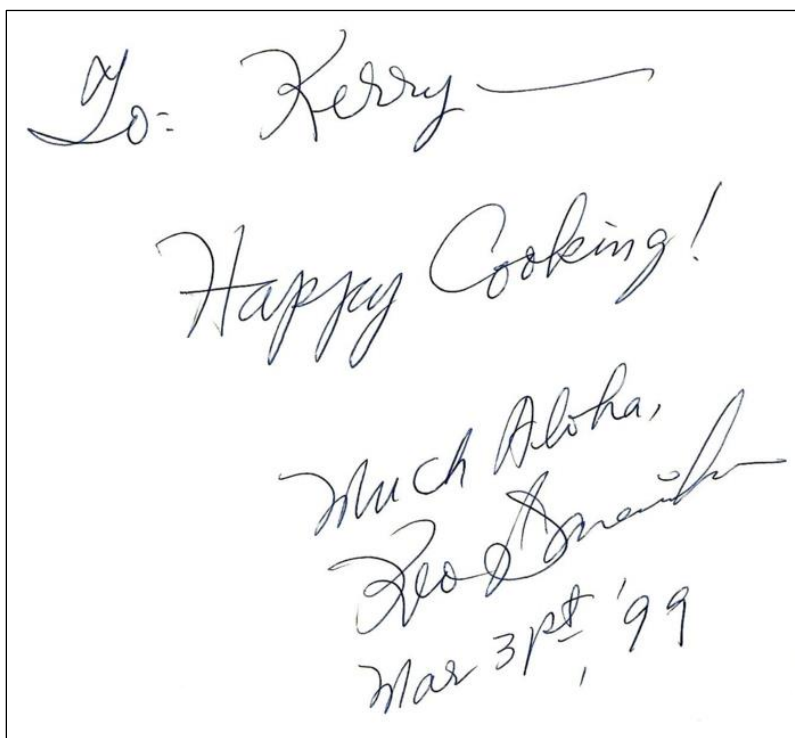 To: Kerry —
Happy Cooking!
Much Aloha,
Keo
Mar 31st, '99